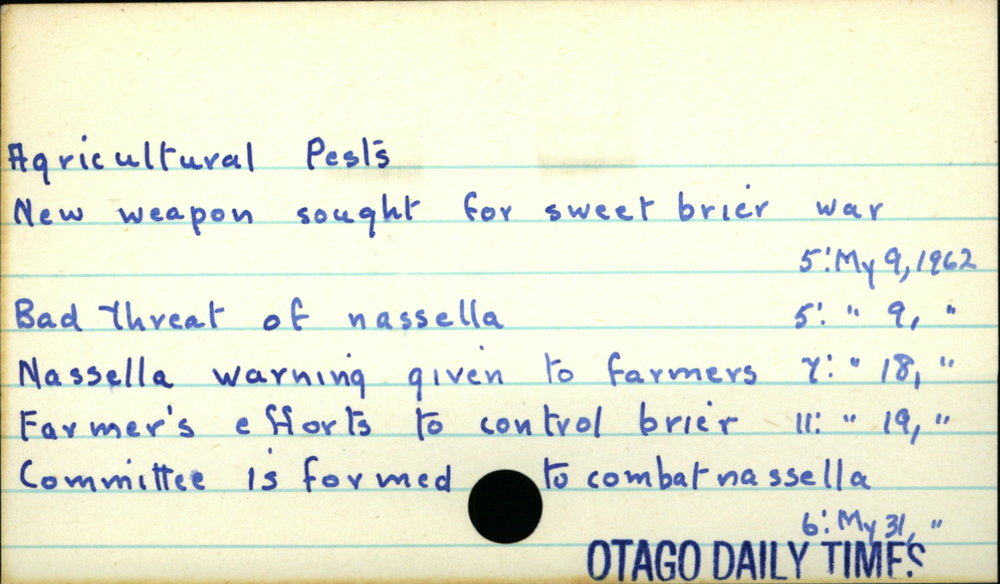 Agricultural Pests
New weapon sought for sweet brier war
5: My 9, 1962
Bad threat of nassella 5: " 9, "
Nassella warning given to farmers 7: " 18, "
Farmer's efforts to control brier 11: " 19, "
Committee is formed to combat nassella
6: My 31, "
OTAGO DAILY TIMES